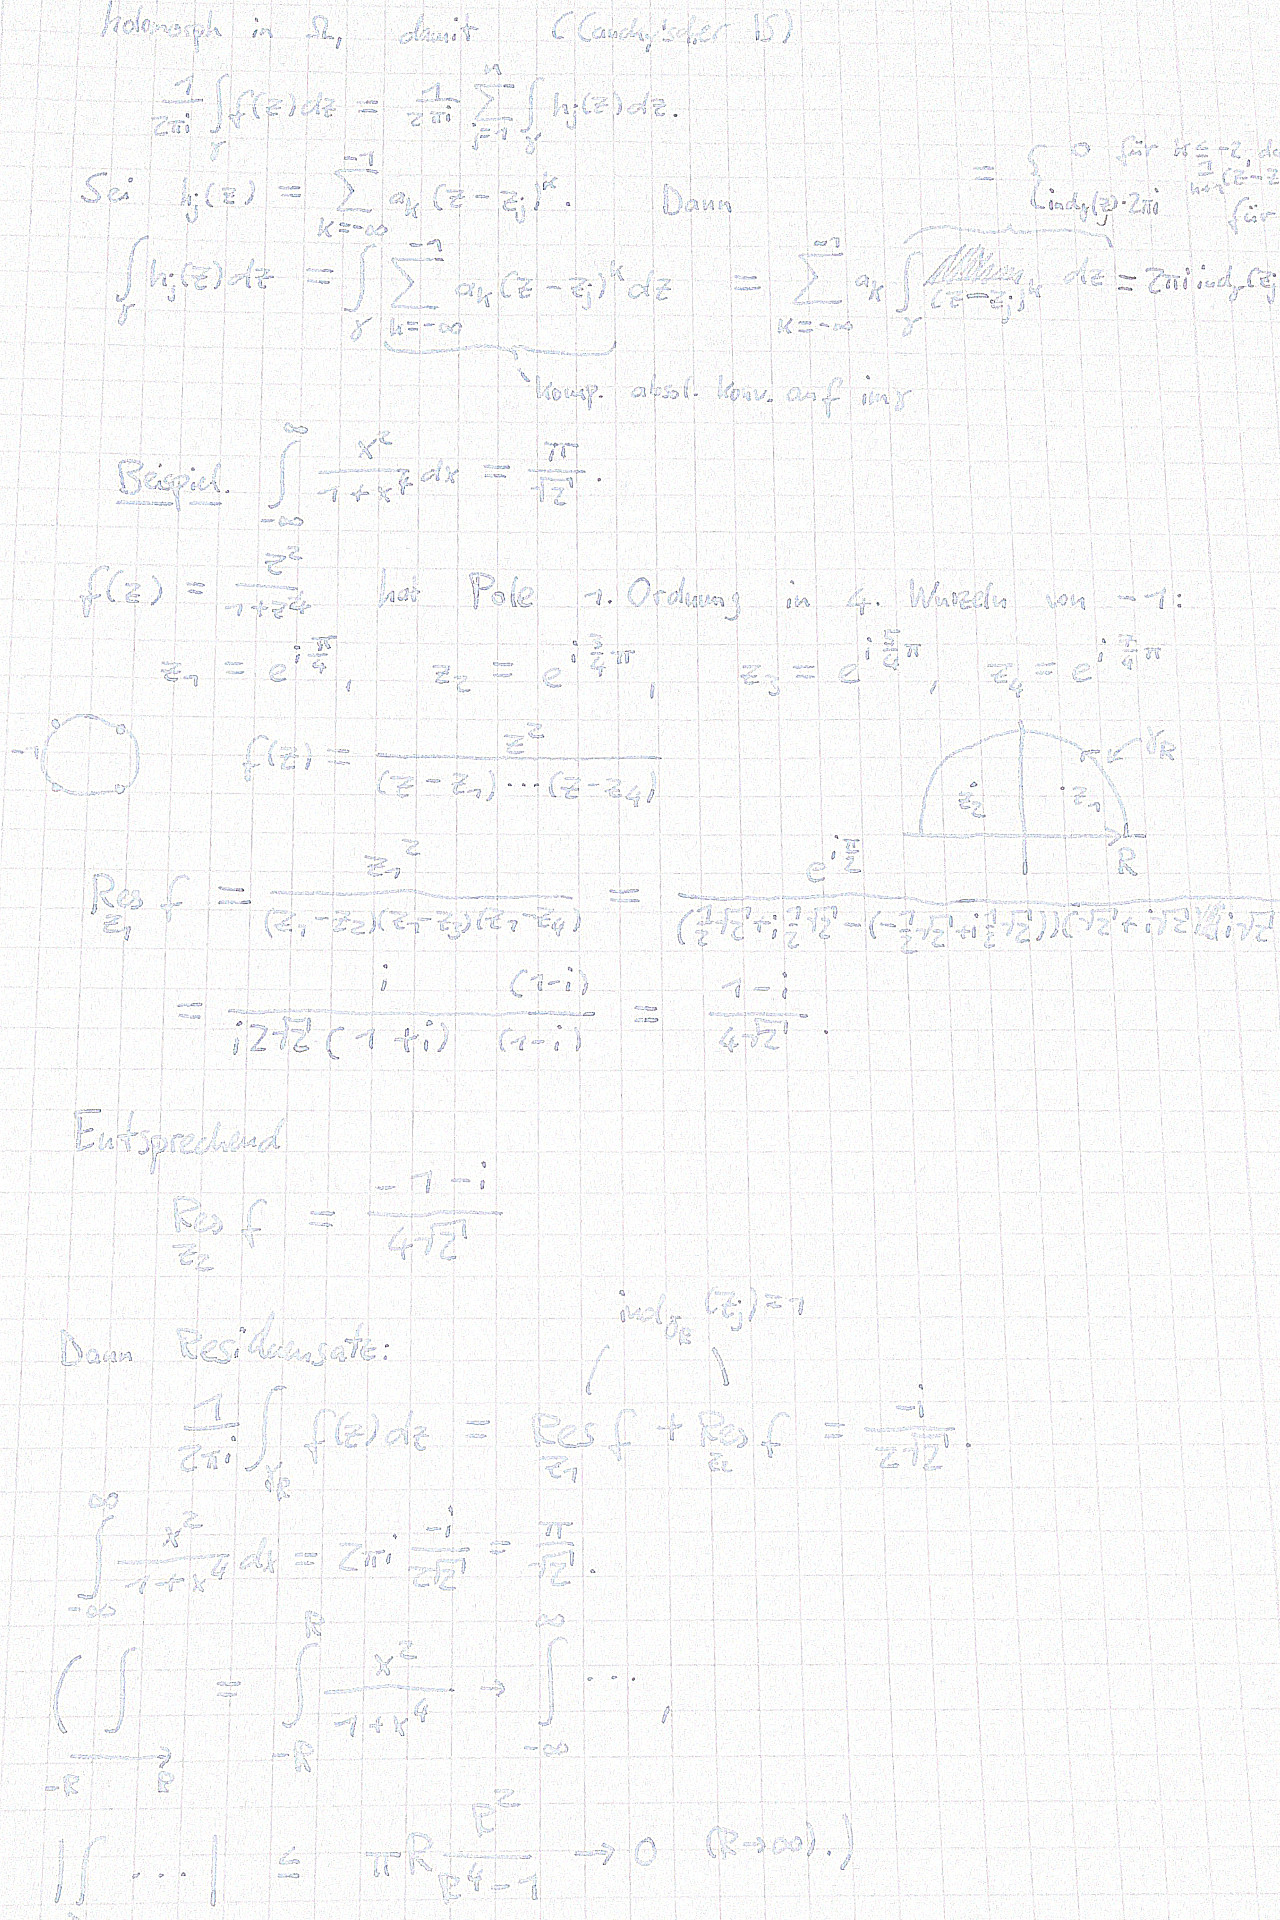 holomorph in Ω, damit (Cauchy'scher IS)
1/(2πi) ∫_γ f(z) dz = 1/(2πi) ∑_{j=1}^{n} ∫_γ h_j(z) dz.
Sei h_j(z) = ∑_{k=-∞}^{-1} a_k (z-z_j)^k. Dann
= { 0 für k ≤ -2, da
ind_γ(z_j)·2πi für
∫_γ h_j(z) dz = ∫_γ ∑_{k=-∞}^{-1} a_k (z-z_j)^k dz = ∑_{k=-∞}^{-1} a_k ∫_γ (z-z_j)^k dz = 2πi ind_γ(z_j
komp. absl. konv. auf im γ
Beispiel. ∫_{-∞}^{∞} x²/(1+x⁴) dx = π/√2.
f(z) = z²/(1+z⁴) hat Pole 1. Ordnung in 4. Wurzeln von -1:
z_1 = e^{i π/4}, z_2 = e^{i 3/4 π}, z_3 = e^{i 5/4 π}, z_4 = e^{i 7/4 π}
-1 f(z) = z²/((z-z_1)...(z-z_4)) γ_R
z_2 z_1
R
Res_{z_1} f = z_1²/((z_1-z_2)(z_1-z_3)(z_1-z_4)) = e^{i π/2}/((1/2√2+i 1/2√2-(-1/2√2+i 1/2√2))(√2+i√2) i√2
= i (1-i)/(i2√2 (1+i) (1-i)) = (1-i)/(4√2).
Entsprechend
Res_{z_2} f = (-1-i)/(4√2)
ind_{γ_R}(z_j) = 1
Dann Residuensatz:
1/(2πi) ∫_{γ_R} f(z) dz = Res_{z_1} f + Res_{z_2} f = -i/(2√2).
∫_{-∞}^{∞} x²/(1+x⁴) dx = 2πi -i/(2√2) = π/√2.
( ∫_{-R → R} = ∫_{-R}^{R} x²/(1+x⁴) → ∫_{-∞}^{∞} ...,
|∫ ...| ≤ πR R²/(R⁴-1) → 0 (R→∞).)